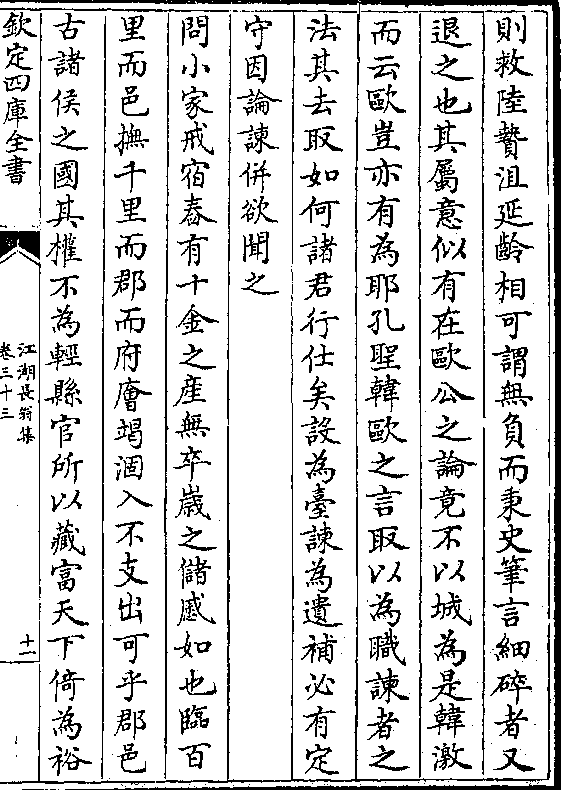 則救陸贄沮延齡相可謂無負而秉史筆言細碎者又
退之也其屬意似有在歐公之論竟不以城為是韓激
而云歐豈亦有為耶孔聖韓歐之言取以為職諫者之
法其去取如何諸君行仕矣設為臺諫為遺補必有定
守因論諫併欲聞之
問小家戒宿舂有十金之産無卒嵗之儲慼如也臨百
里而邑撫千里而郡而府廥竭涸入不支出可乎郡邑
古諸侯之國其權不為輕縣官所以藏富天下倚為裕
欽定四庫全書
江湖長翁集
卷三十三
十一